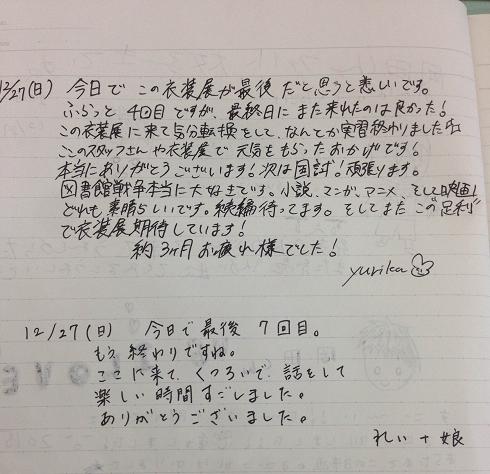 12/27(日) 今日でこの衣装展が最後だと思うと悲しいです。
ふらっと4回目ですが、最終日にまた来れたのは良かった!
この衣装展に来て気分転換をして、なんとか実習終わりました
ここのスタッフさんや衣装展で元気をもらったおかげです!
本当にありがとうございます!次は国試!頑張ります。
図書館戦争本当に大好きです。小説、マンガ、アニメ、そして映画!
どれも素晴らしいです。続編待ってます。そしてまたこの足利
で衣装展期待しています!
約3ヶ月お疲れ様でした!
yurika
12/27(日) 今日で最後 7回目。
もう終わりですね。
ここに来て、くつろいで、話をして
楽しい時間すごしました。
ありがとうございました。
れい+娘